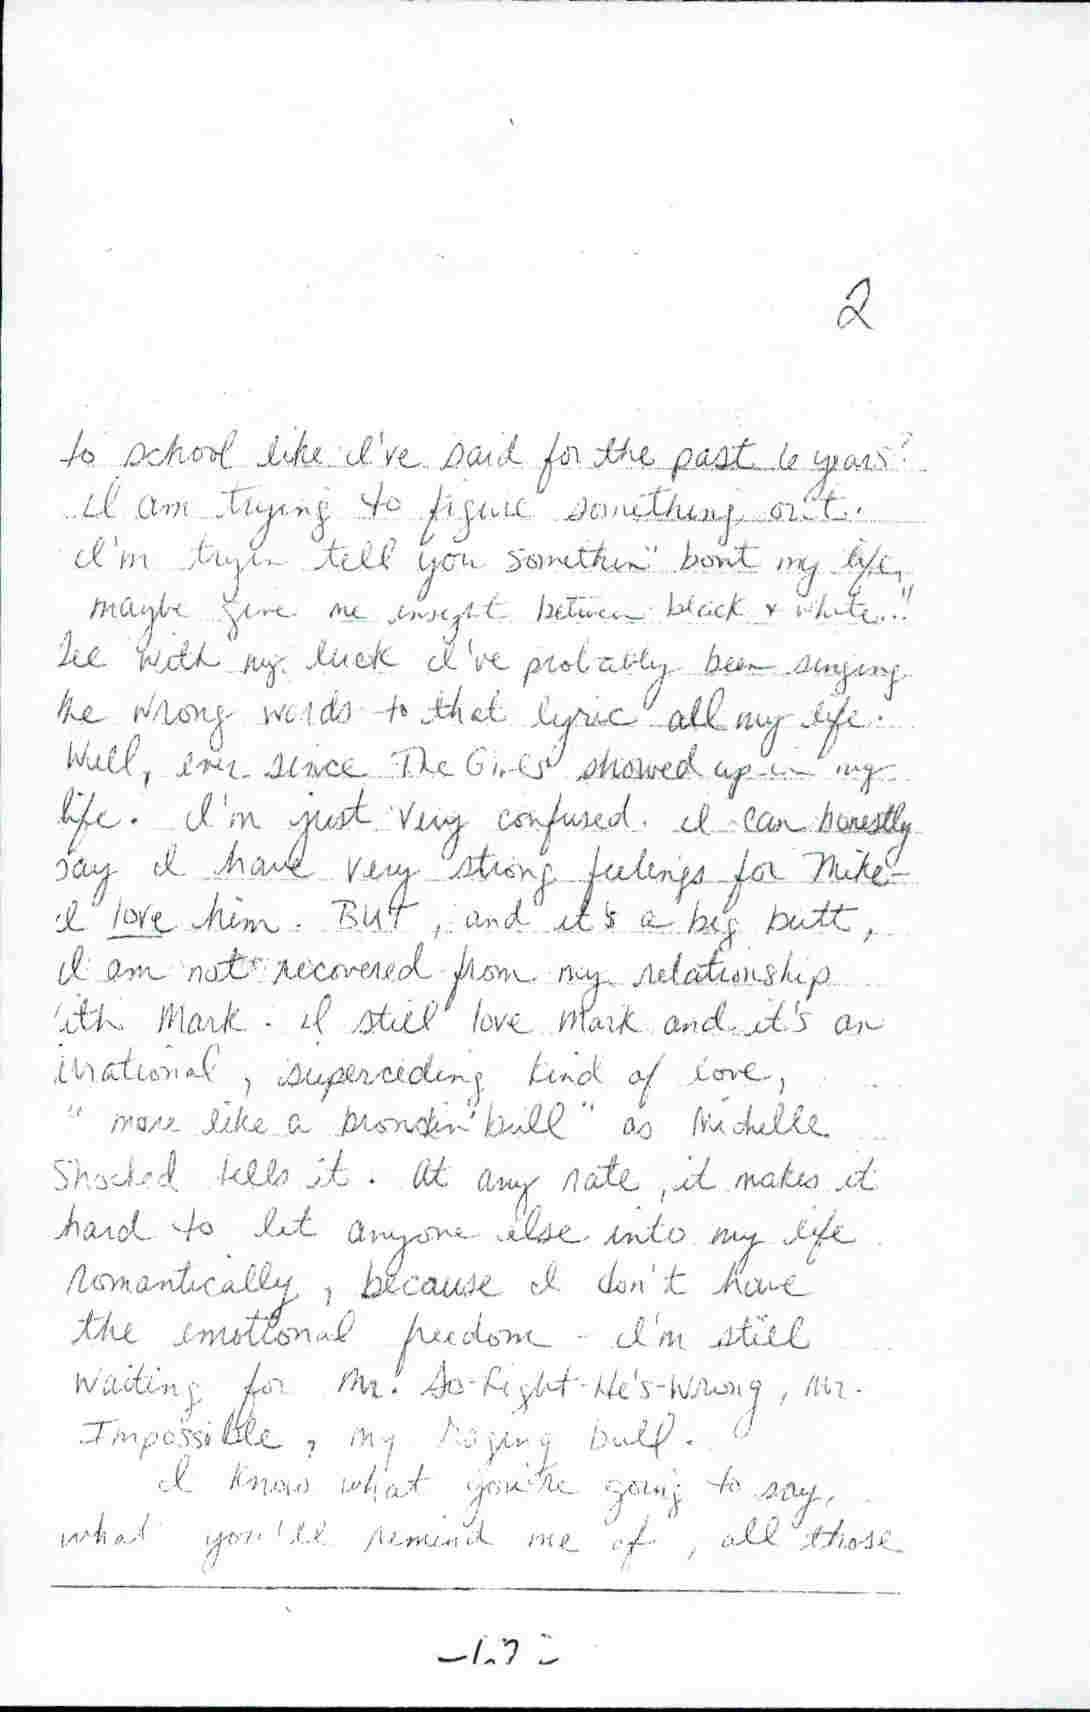 2
to school like I've said for the past 6 years?
I am trying to figure something out.
I'm tryin tell you somethin' bout my life,
maybe give me insight between black & white..."
See with my luck I've probably been singing
the wrong words to that lyric all my life.
Well, ever since The Girls showed up in my
life. I'm just very confused. I can honestly
say I have very strong feelings for Mike-
I love him. BUT, and it's a big butt,
I am not recovered from my relationship
ith Mark. I still love Mark and it's an
irrational, superceding kind of love,
"more like a bronskin' bull" as Michelle
Shocked tells it. At any rate, it makes it
hard to let anyone else into my life
romantically, because I don't have
the emotional freedom - I'm still
waiting for Mr. So-Right-He's-Wrong, Mr.
Impossible, my raging bull.
I know what you're going to say,
what you'll remind me of, all those